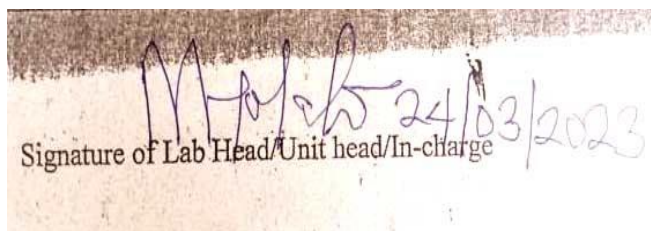 24/03/2023
Signature of Lab Head/Unit head/In-charge